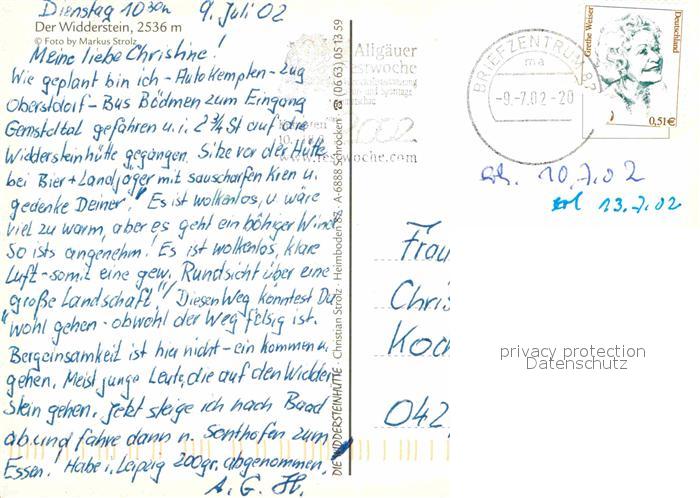 Dienstag 10 30h 9. Juli 02
Der Widderstein, 2536 m
© Foto by Markus Strolz
Meine liebe Christine!
Wie geplant bin ich - Auto Kempten - Zug
Oberstdorf - Bus Bödmen zum Eingang
Gemsteltal gefahren u. i. 2 3/4 St auf die
Widdersteinhütte gegangen. Sitze vor der Hütte
bei Bier + Landjäger mit sauscharfen u.
gedenke Deiner! Es ist wolkenlos, u. wäre
viel zu warm, aber es geht ein böhiger Wind
So ists angenehm! Es ist wolkenlos, klare
Luft - somit eine gew. Rundsicht über eine
"große Landschaft"! Diesen Weg könntest Du
wohl gehen - obwohl der Weg felsig ist.
Bergeinsamkeit ist hier nicht - ein kommen u.
gehen. Meist junge Leute, die auf den Widder-
stein gehen. Jetzt steige ich nach Baad
ab und fahre dann n. Sonthofen zum
Essen! Habe i. Leipzig 200gr. abgenommen.
A. G. H.
DIE WIDDERSTEINHÜTTE · Christian Strolz · Heimboden 83, A-6888 Schröcken · ☎ (0663) 05 13 59
Allgäuer
Festwoche
2002
www.festwoche.com
BRIEFZENTRUM 87
ma
-9.-7.02-20
Grethe Weiser
Deutschland
0,51€
erh. 10.7.02
erl 13.7.02
Frau
Chris
Koc
042
privacy protection
Datenschutz